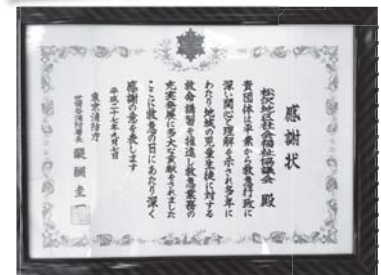 感謝状
松沢地区社会福祉協議会 殿
貴団体は平素から救急行政に
深い関心と理解を示され多年に
わたり地域の児童生徒に対する
救命講習を推進し救急業務の
充実発展に多大な貢献をされました
ここに救急の日にあたり深く
感謝の意を表します
平成二十七年九月七日
東京消防庁
世田谷消防署長